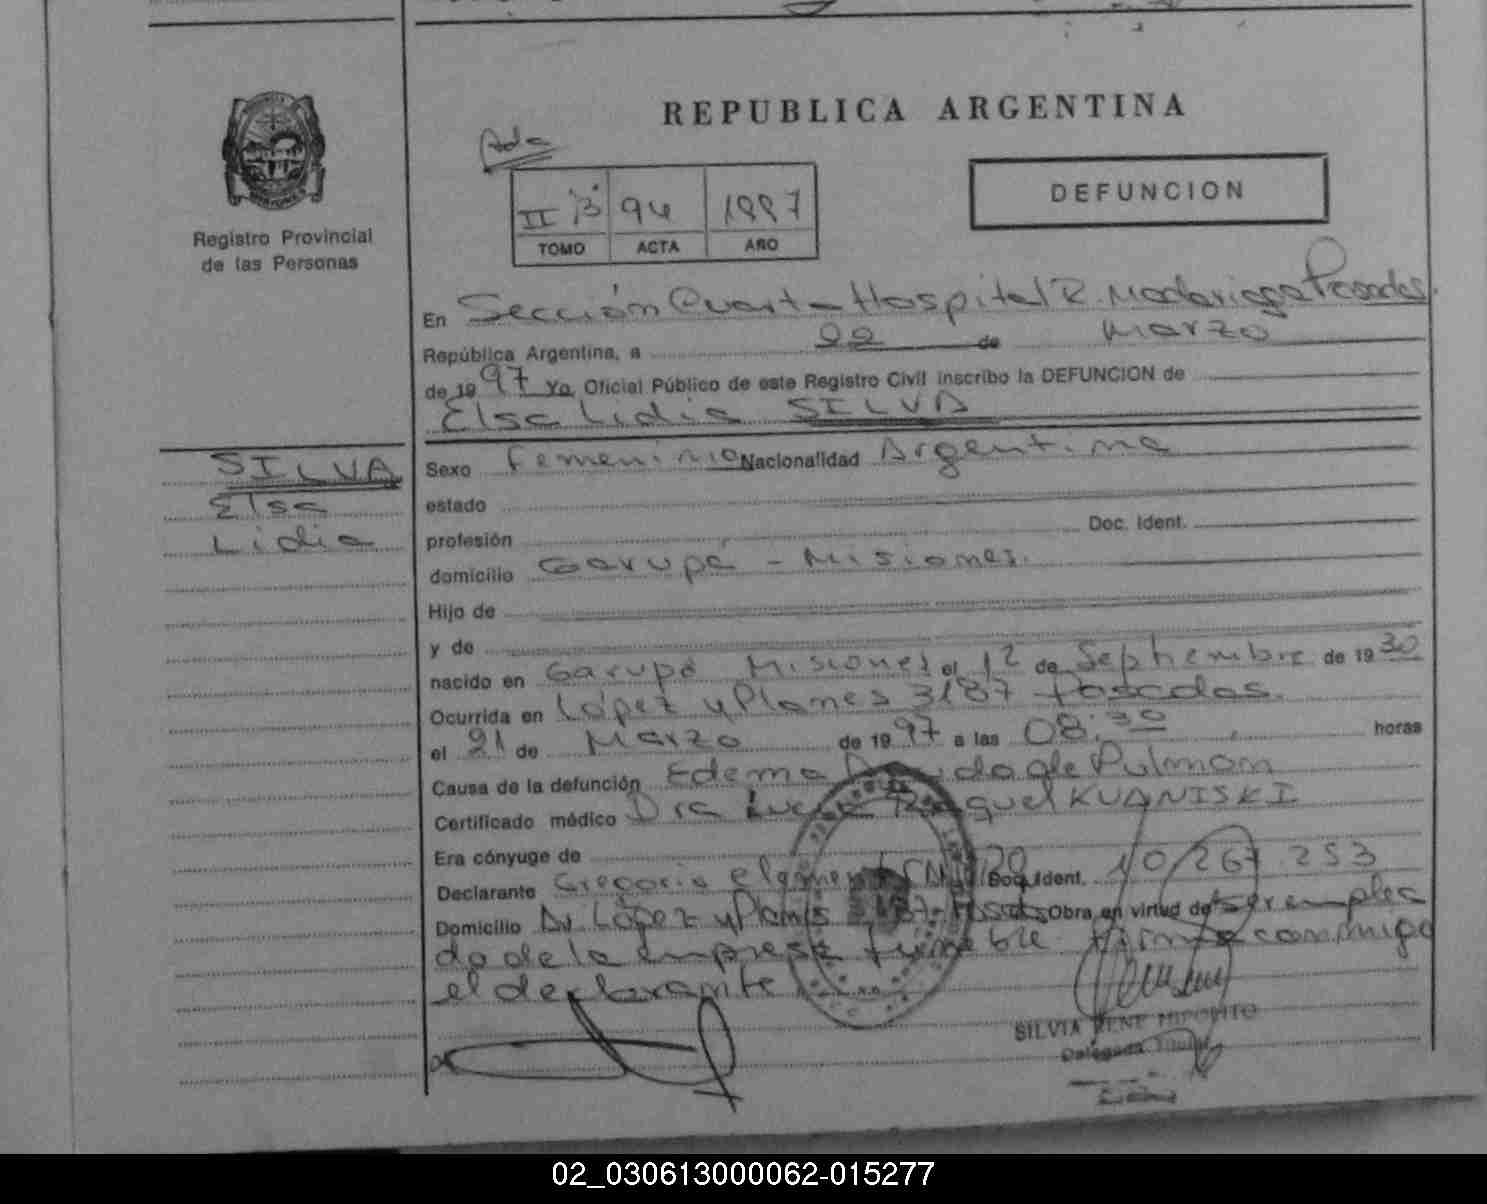 REPUBLICA ARGENTINA
Registro Provincial
de las Personas
II B 94 1997
TOMO ACTA AÑO
DEFUNCION
En Sección Cuarta Hospital R. Madariaga Posadas.
República Argentina, a 22 de Marzo
de 1997 Yo Oficial Público de este Registro Civil inscribo la DEFUNCION de
Elsa Lidia SILVA
SILVA
Elsa
Lidia
Sexo Femenino Nacionalidad Argentina
estado
profesión Doc. Ident.
domicilio Garupá - Misiones.
Hijo de
y de
nacido en Garupá Misiones el 12 de Septiembre de 1930
Ocurrida en López y Planes 3187 Posadas.
el 21 de Marzo de 1997 a las 08:30 horas
Causa de la defunción Edema Agudo de Pulmón
Certificado médico Dra Raquel KUANISKI
Era cónyuge de
Declarante Gregorio Doc. Ident. 10.267.253
Domicilio Av. López y Planes 3187-Posadas Obra en virtud de ser emplea
do de la empresa fúnebre. Firma conmigo
el declarante
SILVIA RENE HIPOLITO
Delegada Titular
02_030613000062-015277